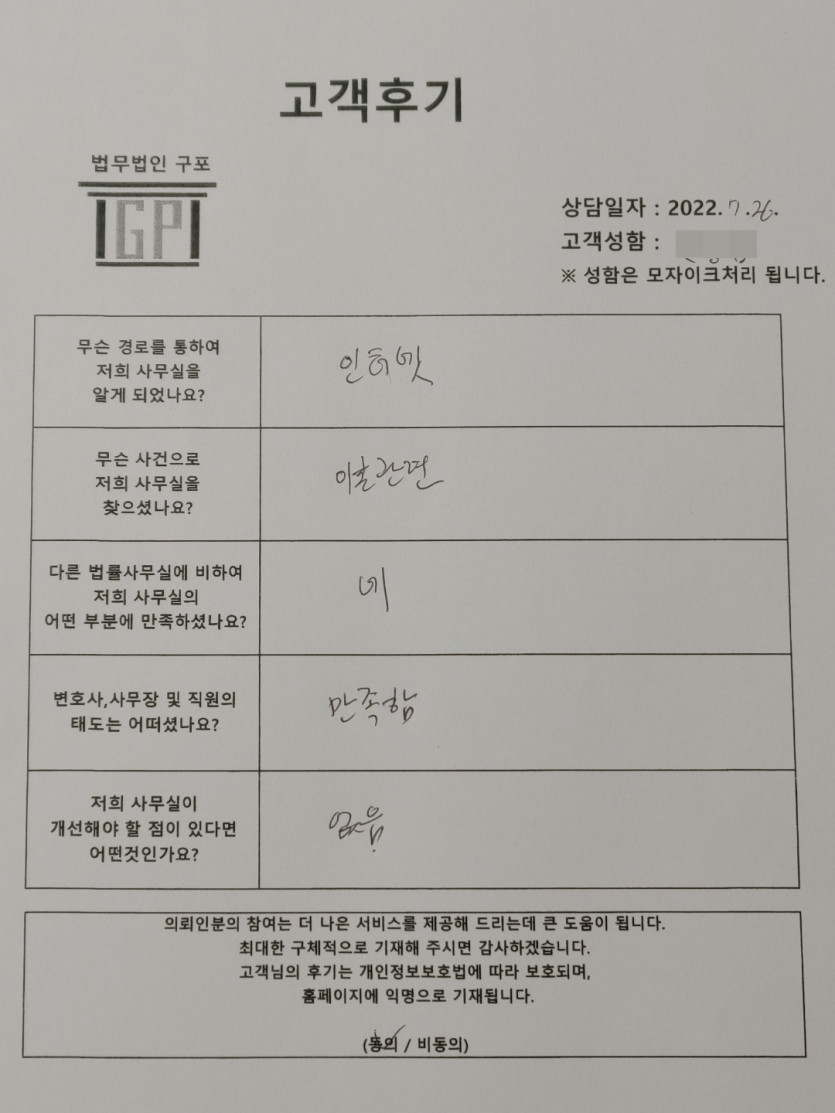 고객후기
법무법인 구포
IGPI
상담일자 : 2022. 7.26.
고객성함 :
※ 성함은 모자이크처리 됩니다.
무슨 경로를 통하여
저희 사무실을
알게 되었나요?
인터넷
무슨 사건으로
저희 사무실을
찾으셨나요?
이혼관련
다른 법률사무실에 비하여
저희 사무실의
어떤 부분에 만족하셨나요?
네
변호사,사무장 및 직원의
태도는 어떠셨나요?
만족함
저희 사무실이
개선해야 할 점이 있다면
어떤것인가요?
없음
의뢰인분의 참여는 더 나은 서비스를 제공해 드리는데 큰 도움이 됩니다.
최대한 구체적으로 기재해 주시면 감사하겠습니다.
고객님의 후기는 개인정보보호법에 따라 보호되며,
홈페이지에 익명으로 기재됩니다.
(동의 / 비동의)